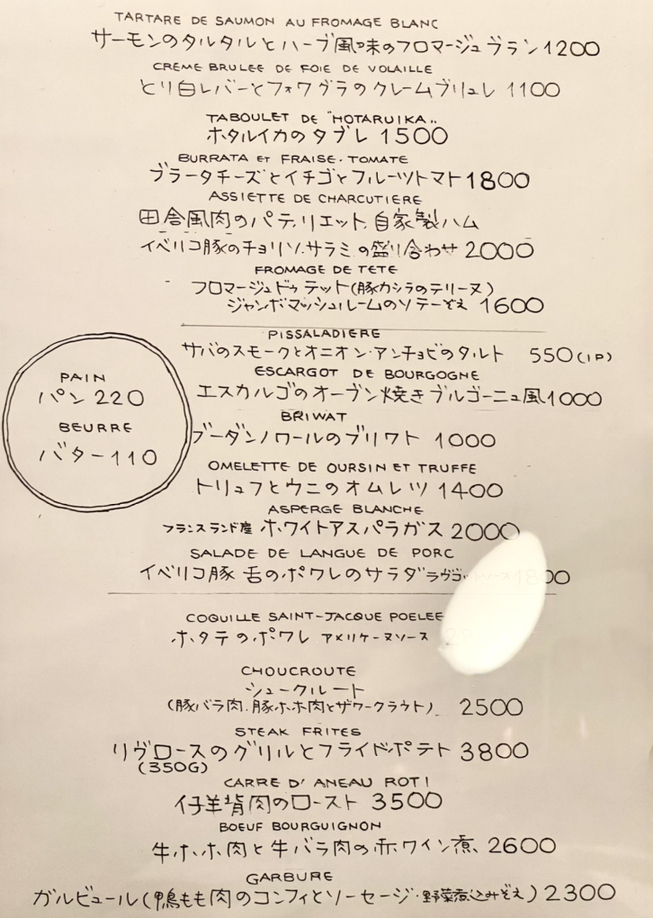 TARTARE DE SAUMON AU FROMAGE BLANC
サーモンのタルタルとハーブ風味のフロマージュブラン 1200
CREME BRULEE DE FOIE DE VOLAILLE
とり白レバーとフォワグラのクレームブリュレ 1100
TABOULET DE "HOTARUIKA"
ホタルイカのタブレ 1500
BURRATA ET FRAISE・TOMATE
ブラータチーズとイチゴとフルーツトマト 1800
ASSIETTE DE CHARCUTIERE
田舎風肉のパテ、リエット、自家製ハム
イベリコ豚のチョリソ、サラミの盛り合わせ 2000
FROMAGE DE TETE
フロマージュドゥテット(豚カシラのテリーヌ)
ジャンボマッシュルームのソテーぞえ 1600
PISSALADIERE
サバのスモークとオニオン・アンチョビのタルト 550(1P)
ESCARGOT DE BOURGOGNE
エスカルゴのオーブン焼きブルゴーニュ風 1000
PAIN
パン 220
BEURRE
バター 110
BRIWAT
ブーダンノワールのブリワト 1000
OMELETTE DE OURSIN ET TRUFFE
トリュフとウニのオムレツ 1400
ASPERGE BLANCHE
フランスランド産 ホワイトアスパラガス 2000
SALADE DE LANGUE DE PORC
イベリコ豚 舌のポワレのサラダ ラヴィゴットソース 1800
COQUILLE SAINT-JACQUE POELEE
ホタテのポワレ アメリケーヌソース
CHOUCROUTE
シュークルート
(豚バラ肉、豚ホホ肉とザワークラウト) 2500
STEAK FRITES
リヴロースのグリルとフライドポテト 3800
(350G)
CARRE D'ANEAU ROTI
仔羊背肉のロースト 3500
BOEUF BOURGUIGNON
牛ホホ肉と牛バラ肉の赤ワイン煮 2600
GARBURE
ガルビュール(鴨もも肉のコンフィとソーセージ・野菜煮込みぞえ) 2300